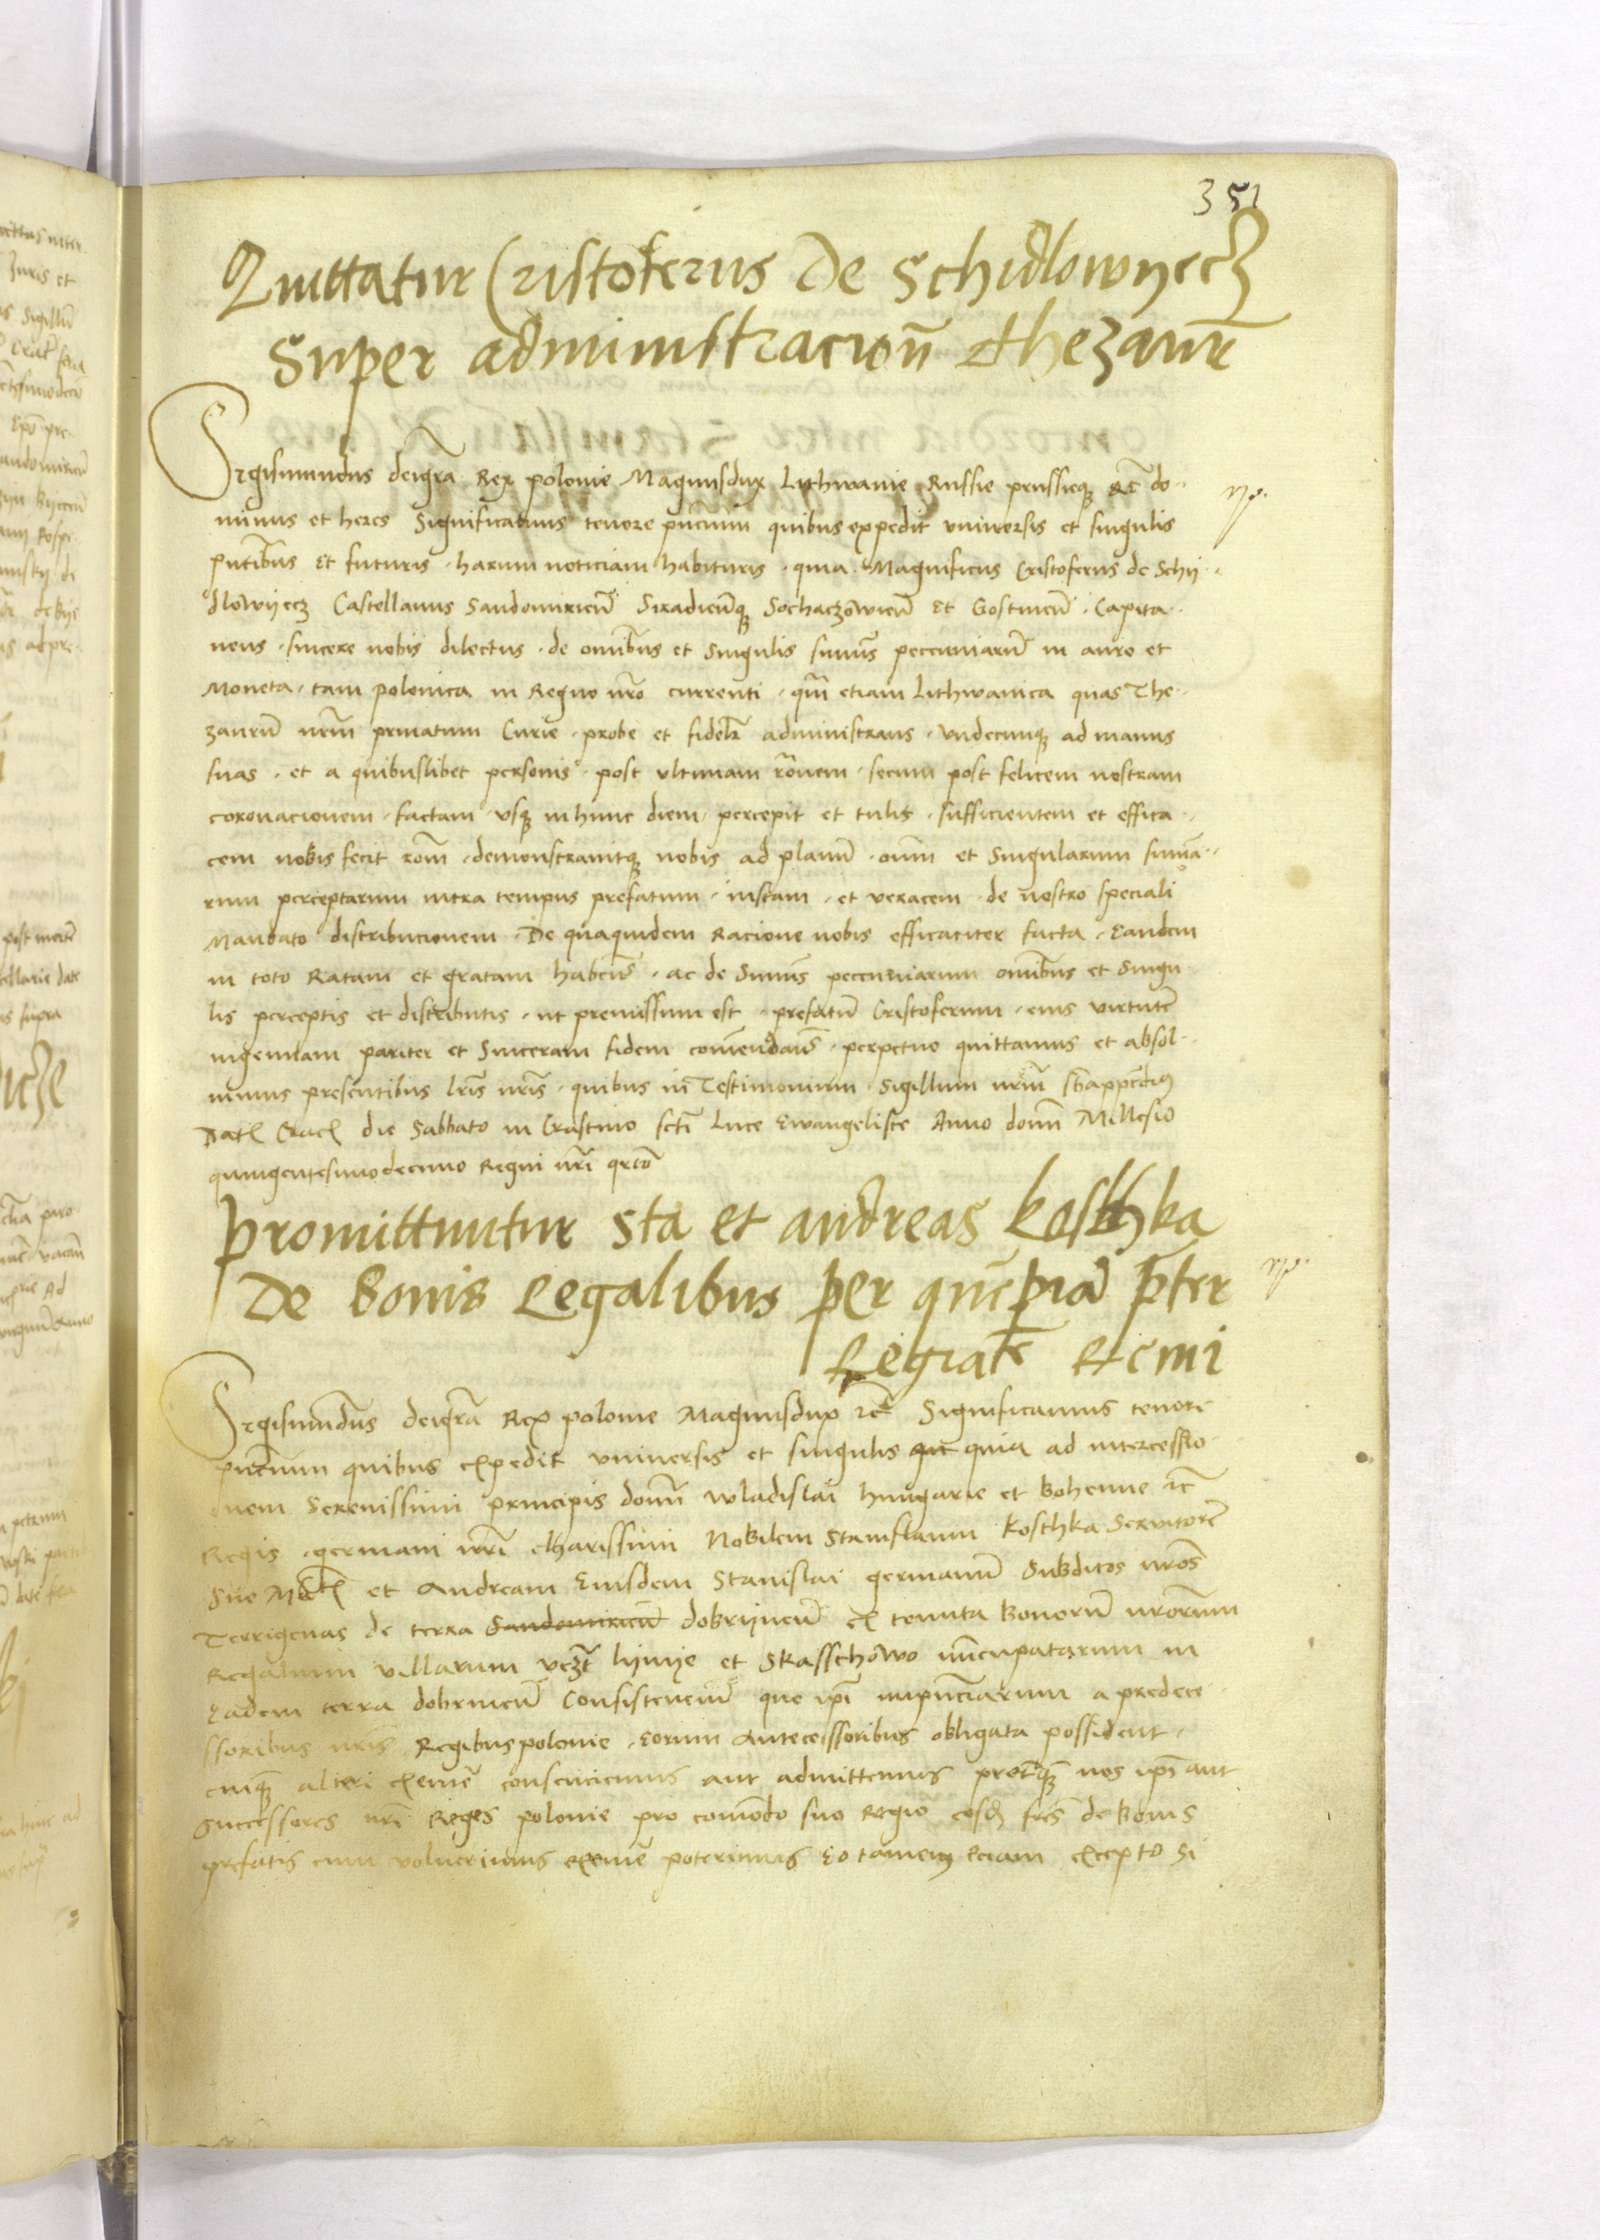 351
Quittatur Cristoferus de Schidlowyecz
Super administracion thezaur
Sigismundus deigra Rex polonie Magnusdux Lithwanie Russie prussieq; etc do-
minus et heres Significamus tenore pncium quibus expedit universis et singulis
pntibus et futuris harum noticiam habituris quia Magnificus Cristoferus de Schy-
dlowyecz Castellanus Sandomirien Siradienq; Sochaczowien et Gostinen Capita-
neus sincere nobis dilectus de omnibus et singulis summis peccuniarum in auro et
Moneta tam polonica in Regno nro currenti qm etiam Lithwanica quas The-
zaurum nrm privatum Curie probe et fidelr administrans undecunq; ad manus
suas et a quibuslibet personis post ultimam ronem secum post felicem nostram
coronacionem factam usq; in hunc diem percepit et tulit sufficientem et effica-
cem nobis fecit rom demonstravitq; nobis ad planum omm et singularum summa-
rum perceptarum intra tempus prefatum iustam et veracem de nostro speciali
Mandato distribucionem De quaquidem Racione nobis efficaciter facta Eandem
in toto Ratam et gratam habens ac de Summis peccuniarum omnibus et singu-
lis perceptis et distributis ut premissum est prefatum Cristoferum eius virtutem
ingenuam pariter et Sinceram fidem comendans perpetuo quittamus et absol-
vimus presentibus lris nris quibus in Testimonium Sigillum nrum
Dat Crac die Sabbato in Crastino scti Luce Ewangeliste Anno domi Millesio
quingentesimodecimo Regni nri qrto
Promittuntur Sta et andreas Kosthka
De bonis Regalibus per quempiam preter
Regiam etc
Sigismundus deigra Rex polonie Magnusdux etc Significamus tenore
pncium quibus expedit universis et singulis quia ad intercessio-
nem Serenissimi principis domi wladislai hungarie et Bohemie etc
Regis germani nri charissimi Nobilem Stanislaum Kosthka Servitorem
Sue Mtis et Andream Eiusdem Stanislai germanum Subditos nros
Terrigenas de terra Sandomirien dobrynen ex tenuta Bonorum nrorum
Regalium villarum vczt lynye et Skasschowo nuncupatarum in
Eadem terra dobrinen Consistencium que ipi inpnciarum a predece-
ssoribus nris Regibus polonie Eorum Antecessoribus obligata possident
cuiq; alteri exeme consenciemus aut admittemus preterq; nos ipi aut
Successores nri Reges polonie pro comodo suo Regio eosd fres de Bonis
prefatis cum voluerimus exeme poterimus Eo tamen eciam excepto Si